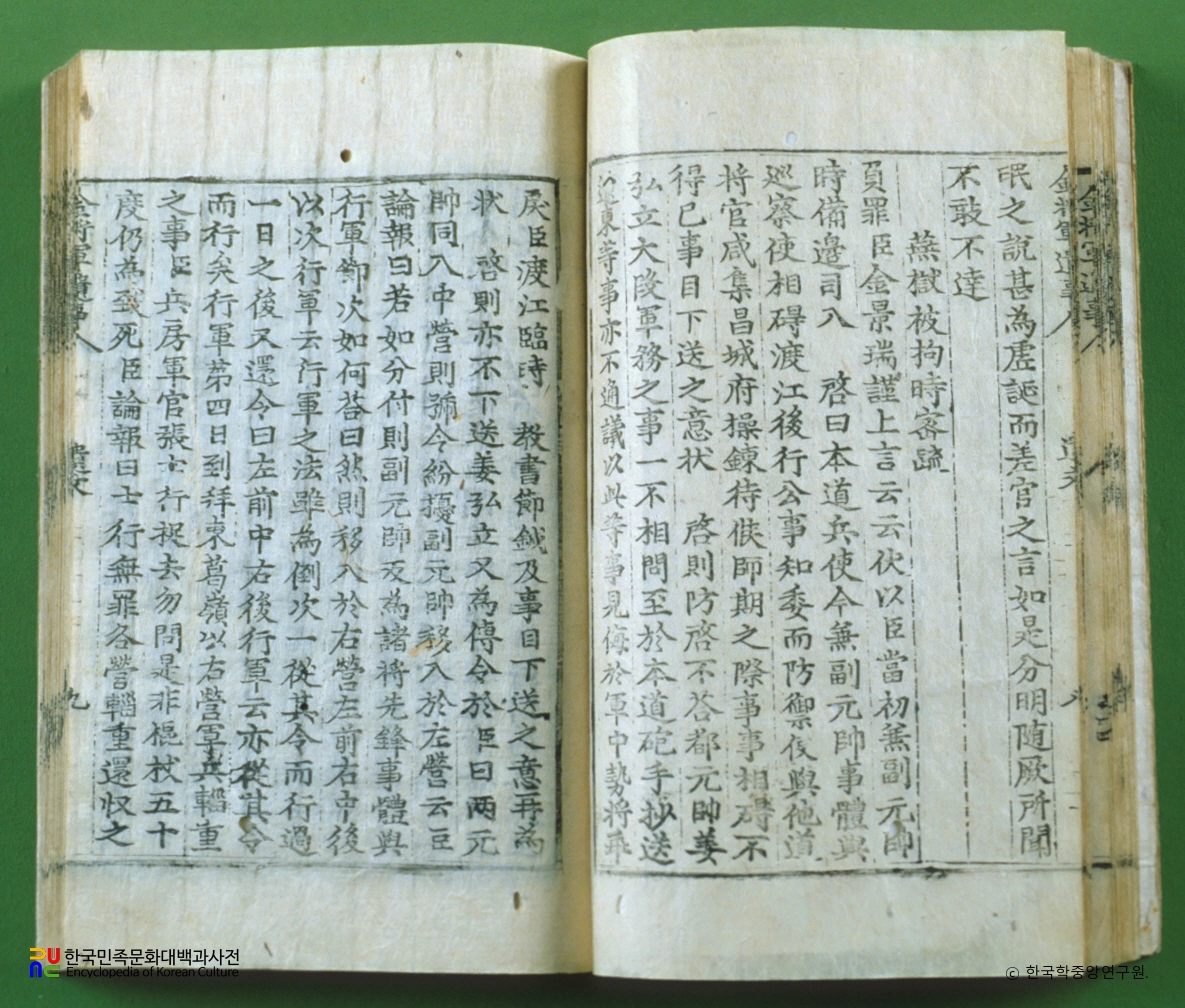 金將軍遺事
遺文
九
氓之說甚為虛誕而差官之言如是分明随厥所聞
不敢不達
燕獄被拘時密疏
負罪臣金景瑞謹上言云云伏以臣當初無副元帥
時備邊司入 啓曰本道兵使今無副元帥事體與
巡察使相碍渡江後行公事知委而防禦使與他道
將官咸集昌城府操鍊待俟師期之際事事相碍不
得已事目下送之意状 啓則防啓不荅都元帥姜
弘立大段軍務之事一不相問至於本道砲手抄送
遼東等事亦不通議以此等事見侮於軍中勢將乖
戾臣渡江臨時 教書節鉞及事目下送之意再為
状 啓則亦不下送姜弘立又為傳令於臣曰两元
帥同入中營則號令紛擾副元帥移入於左營云臣
論報曰若如分付則副元帥反為諸將先鋒事體與
行軍節次如何荅曰然則移入於右營左前右中後
以次行軍云行軍之法雖為倒次一從其令而行過
一日之後又還令曰左前中右後行軍云亦從其令
而行矣行軍第四日到拜東葛嶺以右營軍兵輜重
之事臣兵房軍官張士行捉去勿問是非棍杖五十
度仍為致死臣論報曰士行無罪各營輜重還収之
金將軍遺事
遺文
九
한국민족문화대백과사전
Encyclopedia of Korean Culture
© 한국학중앙연구원.